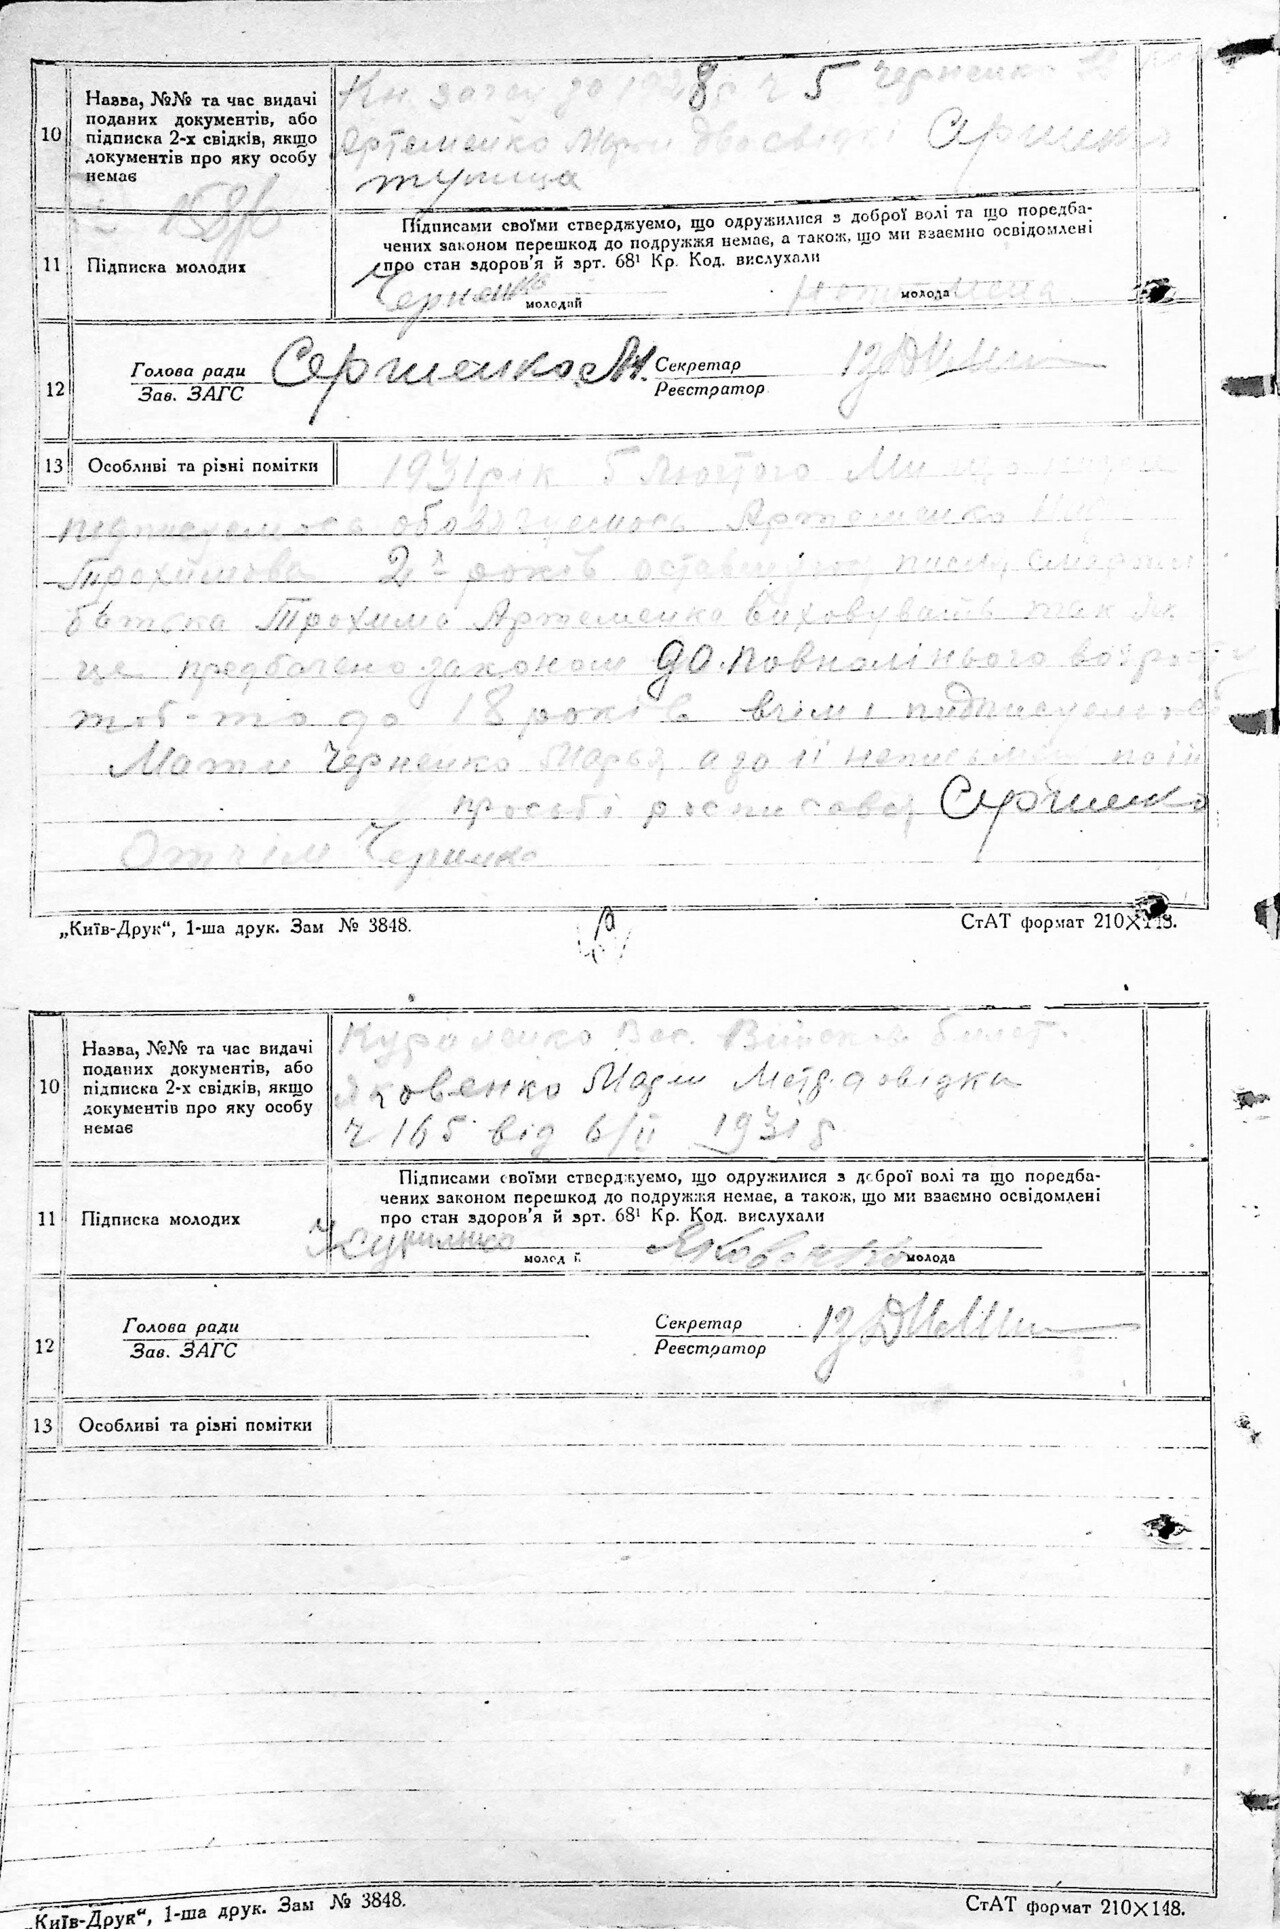 10
Назва, №№ та час видачі
поданих документів, або
підписка 2-х свідків, якщо
документів про яку особу
немає
до 1928 р ч 5 Черненко
Артеменко Марии два свідк
11
Підписка молодих
Підписами своїми стверджуємо, що одружилися з доброї волі та що поредба-
чених законом перешкод до подружжя немає, а також, що ми взаємно освідомлені
про стан здоров'я й зрт. 68¹ Кр. Код. вислухали
Черненко
молодий
молода
12
Голова ради
Зав. ЗАГС
Секретар
Реєстратор
13
Особливі та різні помітки
1931 рік 5 Лютого Ми що нижче
підписуемся обовязуемось Артеменко
Трохимова 2х років оставшуюсь писля смерти
батька Трохима Артеменка виховувать так як
це предбачено законом до повнолінього возрасту
тоб-то до 18 років в чім і підписуемось
Мати Черненко Марья а за її неписьмен по їй
просьбі росписавсь
Отчім Черненко
„Київ-Друк“, 1-ша друк. Зам № 3848.
СтАТ формат 210×148.
10
Назва, №№ та час видачі
поданих документів, або
підписка 2-х свідків, якщо
документів про яку особу
немає
Вас. Військов. билет.
Яковенко Марии Метр. довідка
ч 165 від 6/II 1931 р
11
Підписка молодих
Підписами своїми стверджуємо, що одружилися з доброї волі та що поредба-
чених законом перешкод до подружжя немає, а також, що ми взаємно освідомлені
про стан здоров'я й зрт. 68¹ Кр. Код. вислухали
Яковенко
молод й
молода
12
Голова ради
Зав. ЗАГС
Секретар
Реєстратор
13
Особливі та різні помітки
„Київ-Друк“, 1-ша друк. Зам № 3848.
СтАТ формат 210×148.